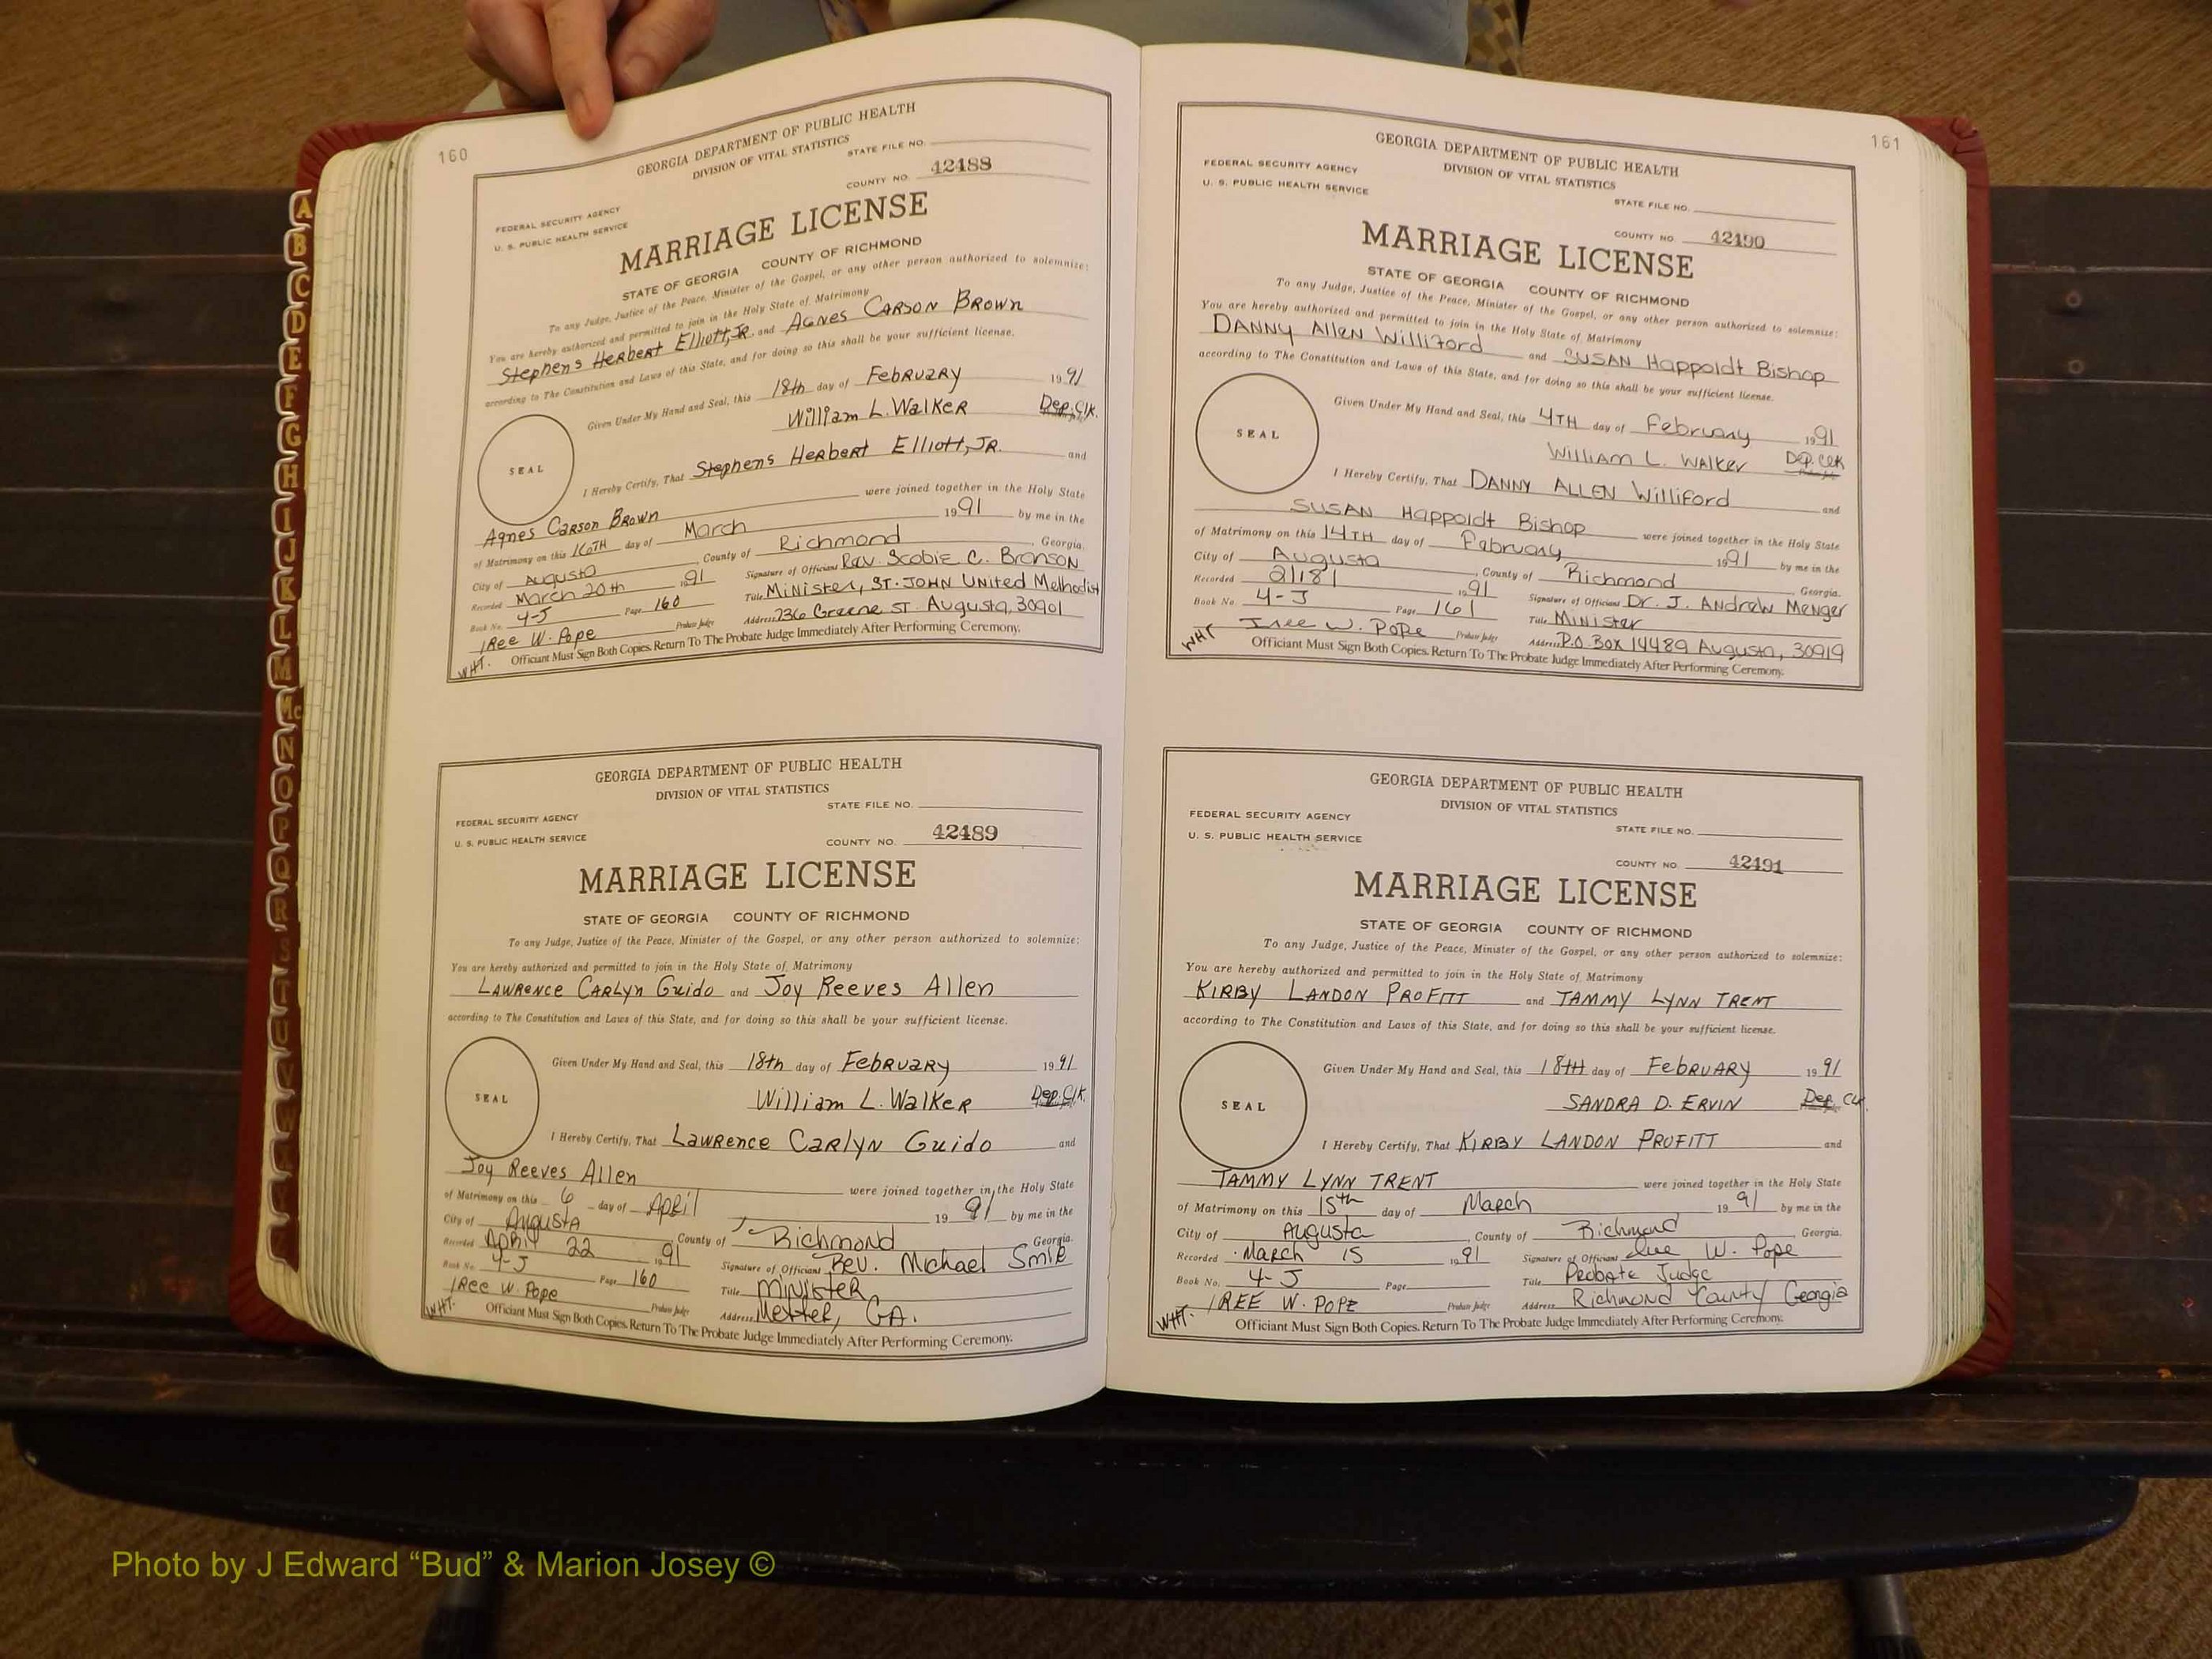 160
GEORGIA DEPARTMENT OF PUBLIC HEALTH
DIVISION OF VITAL STATISTICS
STATE FILE NO.
COUNTY NO. 42488
FEDERAL SECURITY AGENCY
U. S. PUBLIC HEALTH SERVICE
MARRIAGE LICENSE
STATE OF GEORGIA COUNTY OF RICHMOND
To any Judge, Justice of the Peace, Minister of the Gospel, or any other person authorized to solemnize:
You are hereby authorized and permitted to join in the Holy State of Matrimony
Stephens Herbert Elliott, JR. and Agnes Carson Brown
according to The Constitution and Laws of this State, and for doing so this shall be your sufficient license.
Given Under My Hand and Seal, this 18th day of February 1991
William L. Walker Dep. Clk.
SEAL
I Hereby Certify, That Stephens Herbert Elliott, JR. and
Agnes Carson Brown were joined together in the Holy State
of Matrimony on this 16TH day of March 1991 by me in the
City of Augusta, County of Richmond, Georgia.
Recorded March 20th 1991 Signature of Officiant Rev. Scobie C. Branson
Book No. 4-J Page 160 Title Minister, ST. JOHN United Methodist
IRee W. Pope Probate Judge Address 736 Greene ST. Augusta, 30901
WHT. Officiant Must Sign Both Copies. Return To The Probate Judge Immediately After Performing Ceremony.
GEORGIA DEPARTMENT OF PUBLIC HEALTH
DIVISION OF VITAL STATISTICS
STATE FILE NO.
FEDERAL SECURITY AGENCY
U. S. PUBLIC HEALTH SERVICE
COUNTY NO. 42489
MARRIAGE LICENSE
STATE OF GEORGIA COUNTY OF RICHMOND
To any Judge, Justice of the Peace, Minister of the Gospel, or any other person authorized to solemnize:
You are hereby authorized and permitted to join in the Holy State of Matrimony
Lawrence Carlyn Guido and Joy Reeves Allen
according to The Constitution and Laws of this State, and for doing so this shall be your sufficient license.
Given Under My Hand and Seal, this 18th day of February 1991
William L. Walker Dep. Clk.
SEAL
I Hereby Certify, That Lawrence Carlyn Guido and
Joy Reeves Allen were joined together in the Holy State
of Matrimony on this 6 day of April 1991 by me in the
City of Augusta, County of Richmond Georgia.
Recorded April 22 1991 Signature of Officiant Rev. Michael
Book No. 4-J Page 160 Title Minister
IRee W. Pope Probate Judge Address Metter, GA.
WHT. Officiant Must Sign Both Copies. Return To The Probate Judge Immediately After Performing Ceremony.
161
GEORGIA DEPARTMENT OF PUBLIC HEALTH
DIVISION OF VITAL STATISTICS
FEDERAL SECURITY AGENCY
U. S. PUBLIC HEALTH SERVICE
STATE FILE NO.
COUNTY NO. 42490
MARRIAGE LICENSE
STATE OF GEORGIA COUNTY OF RICHMOND
To any Judge, Justice of the Peace, Minister of the Gospel, or any other person authorized to solemnize:
You are hereby authorized and permitted to join in the Holy State of Matrimony
Danny Allen Williford and Susan Happoldt Bishop
according to The Constitution and Laws of this State, and for doing so this shall be your sufficient license.
Given Under My Hand and Seal, this 4TH day of February 1991
William L. Walker Dep. Clk
SEAL
I Hereby Certify, That Danny Allen Williford and
Susan Happoldt Bishop were joined together in the Holy State
of Matrimony on this 14TH day of February 1991 by me in the
City of Augusta, County of Richmond Georgia.
Recorded 2/18/ 1991 Signature of Officiant Dr. J. Andrew Menger
Book No. 4-J Page 161 Title Minister
Iree W. Pope Probate Judge Address P.O. Box 14489 Augusta, 30919
WHT Officiant Must Sign Both Copies. Return To The Probate Judge Immediately After Performing Ceremony.
GEORGIA DEPARTMENT OF PUBLIC HEALTH
DIVISION OF VITAL STATISTICS
FEDERAL SECURITY AGENCY
U. S. PUBLIC HEALTH SERVICE
STATE FILE NO.
COUNTY NO. 42491
MARRIAGE LICENSE
STATE OF GEORGIA COUNTY OF RICHMOND
To any Judge, Justice of the Peace, Minister of the Gospel, or any other person authorized to solemnize:
You are hereby authorized and permitted to join in the Holy State of Matrimony
KIRBY LANDON PROFITT and TAMMY LYNN TRENT
according to The Constitution and Laws of this State, and for doing so this shall be your sufficient license.
Given Under My Hand and Seal, this 18TH day of February 1991
SANDRA D. ERVIN Dep. Clk.
SEAL
I Hereby Certify, That KIRBY LANDON PROFITT and
TAMMY LYNN TRENT were joined together in the Holy State
of Matrimony on this 15th day of March 1991 by me in the
City of Augusta, County of Richmond, Georgia.
Recorded March 15 1991 Signature of Officiant W. Pope
Book No. 4-J Page Title Probate Judge
IREE W. POPE Probate Judge Address Richmond County Georgia
WHT. Officiant Must Sign Both Copies. Return To The Probate Judge Immediately After Performing Ceremony.
A
B
C
D
E
F
G
H
I
J
K
L
M
Mc
N
O
P
Q
R
S
T
U
V
W
Photo by J Edward “Bud” & Marion Josey ©